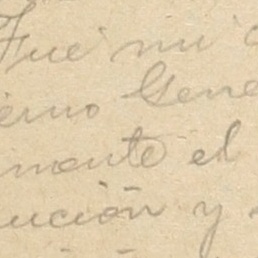 Fue mi
ierno Gene
mente el
ución y